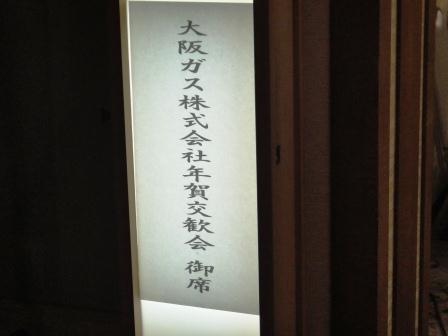 大阪ガス株式会社年賀交歓会 御席